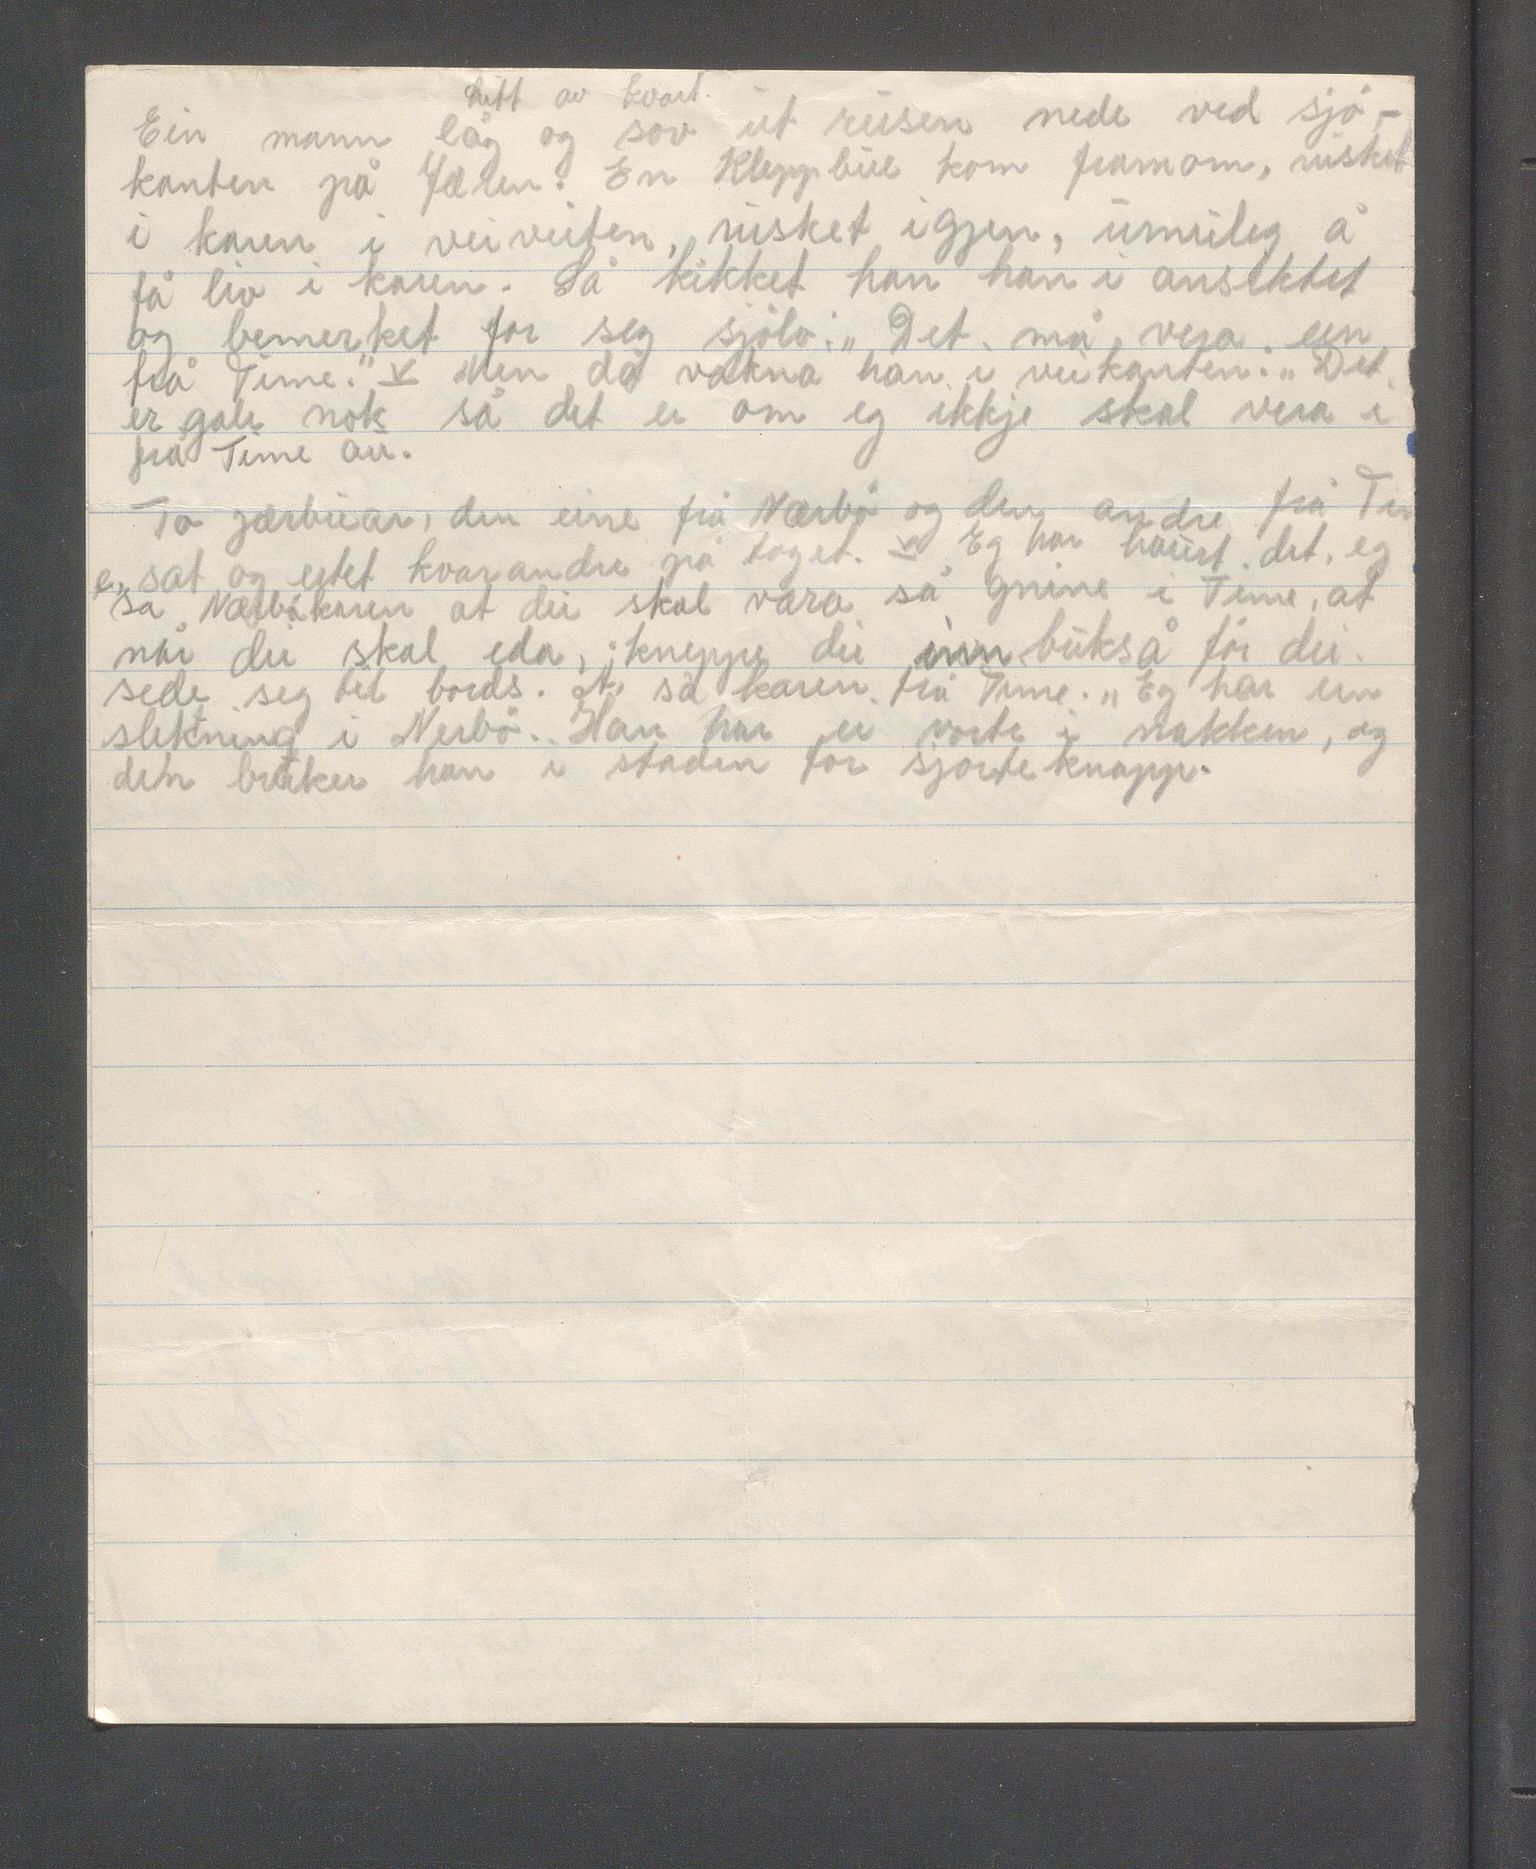 Litt av kvart.
Ein mann låg og sov ut rusen nede ved sjø-
kanten på Jæren. En Kleppbue kom framom, rusket
i karen i veiveiten, rusket igjen, umuleg å
få liv i karen. Så kikket han han i ansiktet
og bemerket for seg sjølv: „Det må vera een
frå Time." Men då vakna han i veikanten. „Det
er gale nok så det er om eg ikkje skal vera i
frå Time au.
To jærbuar, den eine frå Nærbø og den andre frå Tim
e, sat og ertet kvarandre på toget. Eg har høurt det, eg
sa Nærbøkaren at dei skal vara så gnine i Time, at
når dei skal eda, kneppe dei inn bukså før dei
sede seg til bords. sa karen frå Time. „Eg har ein
slektning i Nerbø. Han har ei vorte i nakken, og
den bruker han i staden for sjorteknapp.